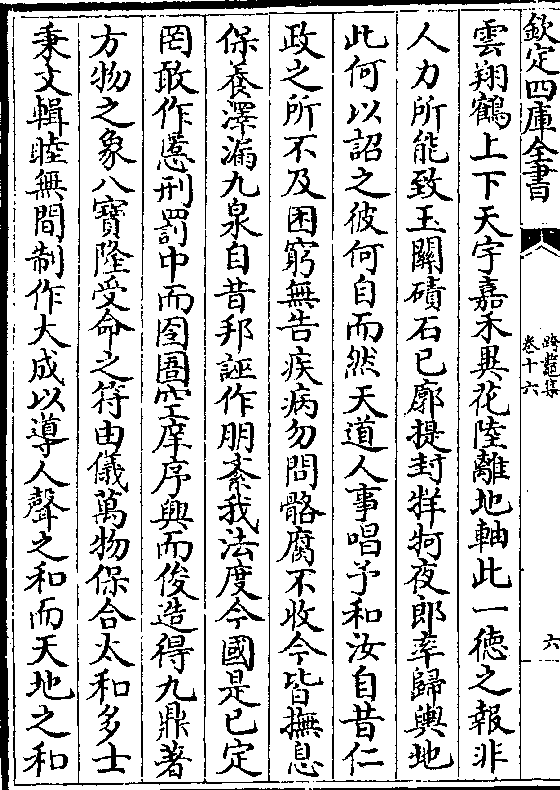 欽定四庫全書
跨鼇集
卷十六
六
雲翔鶴上下天宇嘉禾異花陸離地軸此一德之報非
人力所能致玉關磧石已廓提封牂牁夜郎率歸輿地
此何以詔之彼何自而然天道人事唱予和汝自昔仁
政之所不及困窮無告疾病勿問骼腐不收今皆撫息
保養澤漏九泉自昔邦誣作朋紊我法度今國是已定
罔敢作慝刑罰中而囹圄空庠序興而俊造得九鼎著
方物之象八寶隆受命之符由儀萬物保合太和多士
秉文輯睦無間制作大成以導人聲之和而天地之和